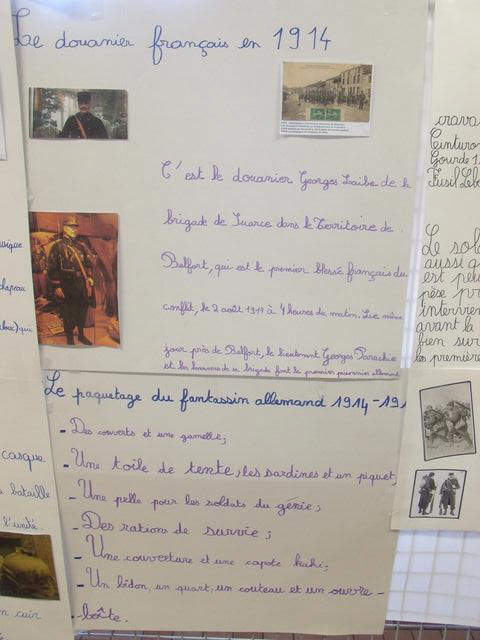 Le douanier français en 1914
C'est le douanier Georges Laibe de la
brigade de Suarce dans le Territoire de
Belfort, qui est le premier blessé français du
conflit, le 2 août 1914 à 4 heures du matin. Le même
jour près de Belfort, le lieutenant Georges
et les hommes de sa brigade font le premier prisonnier allemand
Le paquetage du fantassin allemand 1914-191
- Des couverts et une gamelle;
- Une toile de tente, les sardines et un piquet,
- Une pelle pour les soldats du génie;
- Des rations de survie;
- Une couverture et une capote kaki;
- Un bidon, un quart, un couteau et un ouvre-
-boîte.
casque
bataille
l'unité.
en cuir
chapeau
qui
crava
Cinturo
Gourde 1
Fusil Leb
Le sol
aussi a
est peu
pèse pr
intervien
avant la
bien sur
les première